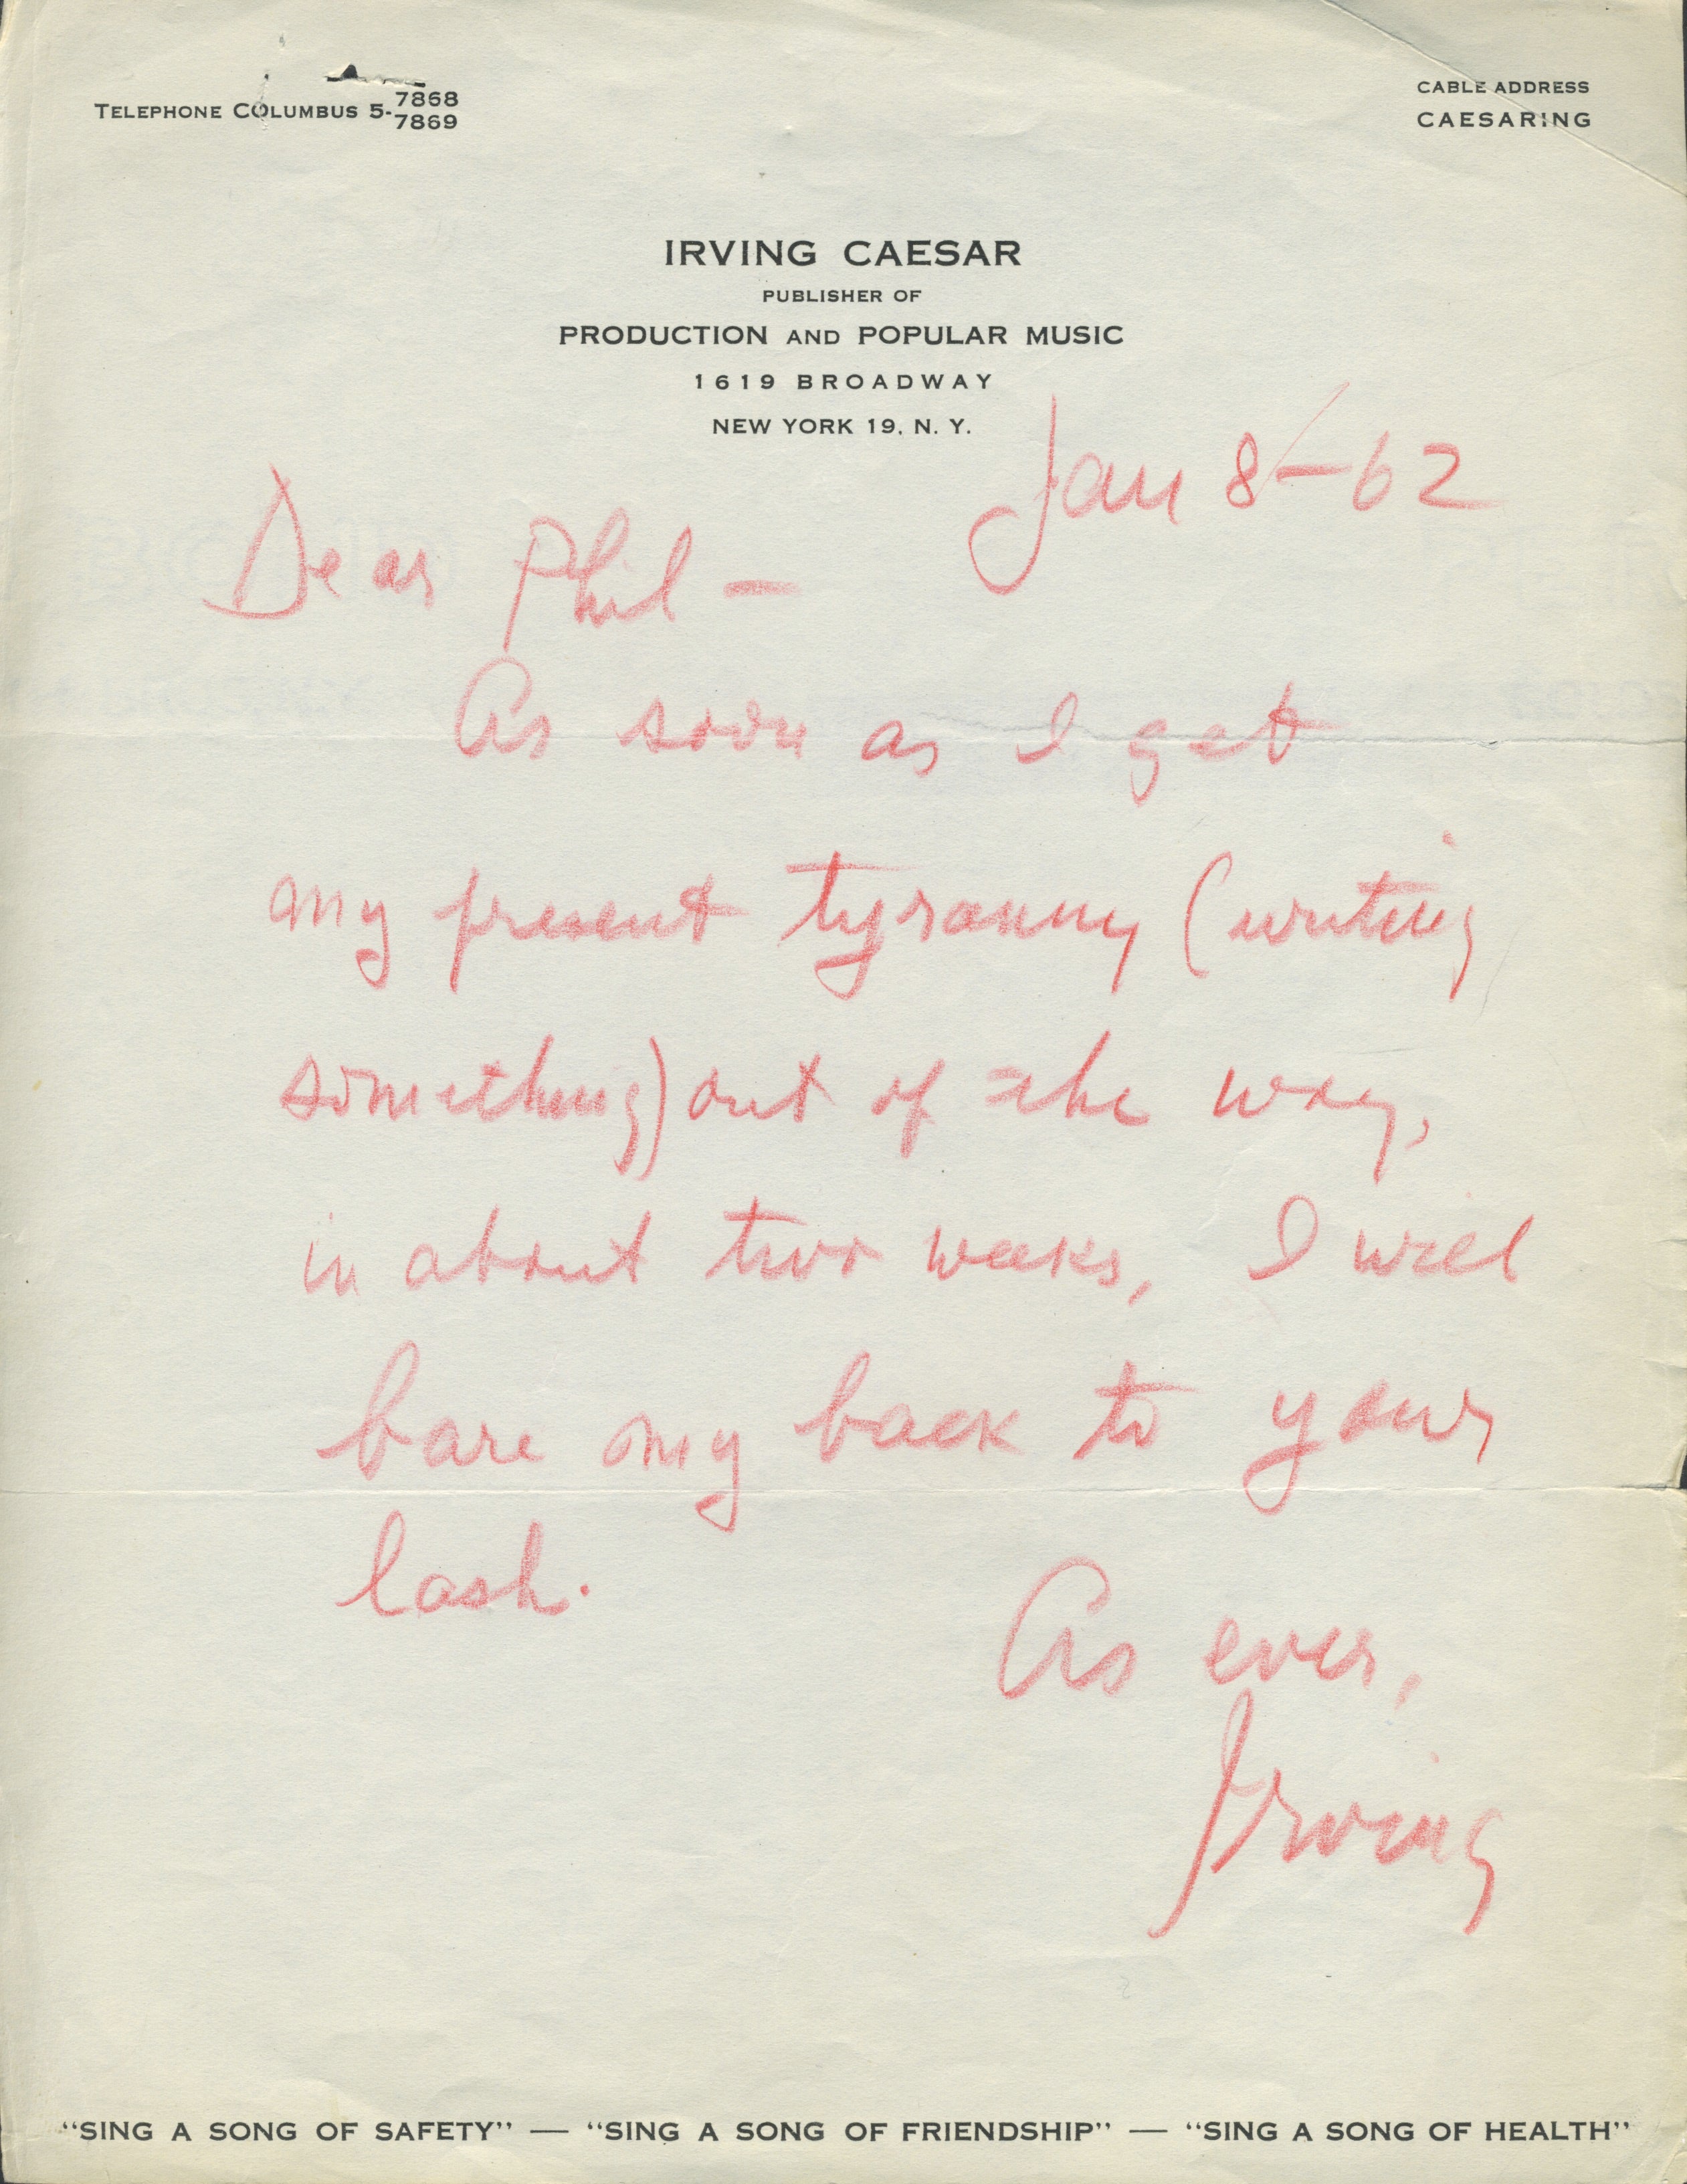 TELEPHONE COLUMBUS 5-7868
7869
CABLE ADDRESS
CAESARING
IRVING CAESAR
PUBLISHER OF
PRODUCTION AND POPULAR MUSIC
1619 BROADWAY
NEW YORK 19, N. Y.
Jan 8-62
Dear Phil -
As soon as I get
my present tyranny (writing
something) out of the way,
in about two weeks, I will
bare my back to your
lash.
As ever,
Irving
"SING A SONG OF SAFETY" — "SING A SONG OF FRIENDSHIP" — "SING A SONG OF HEALTH"